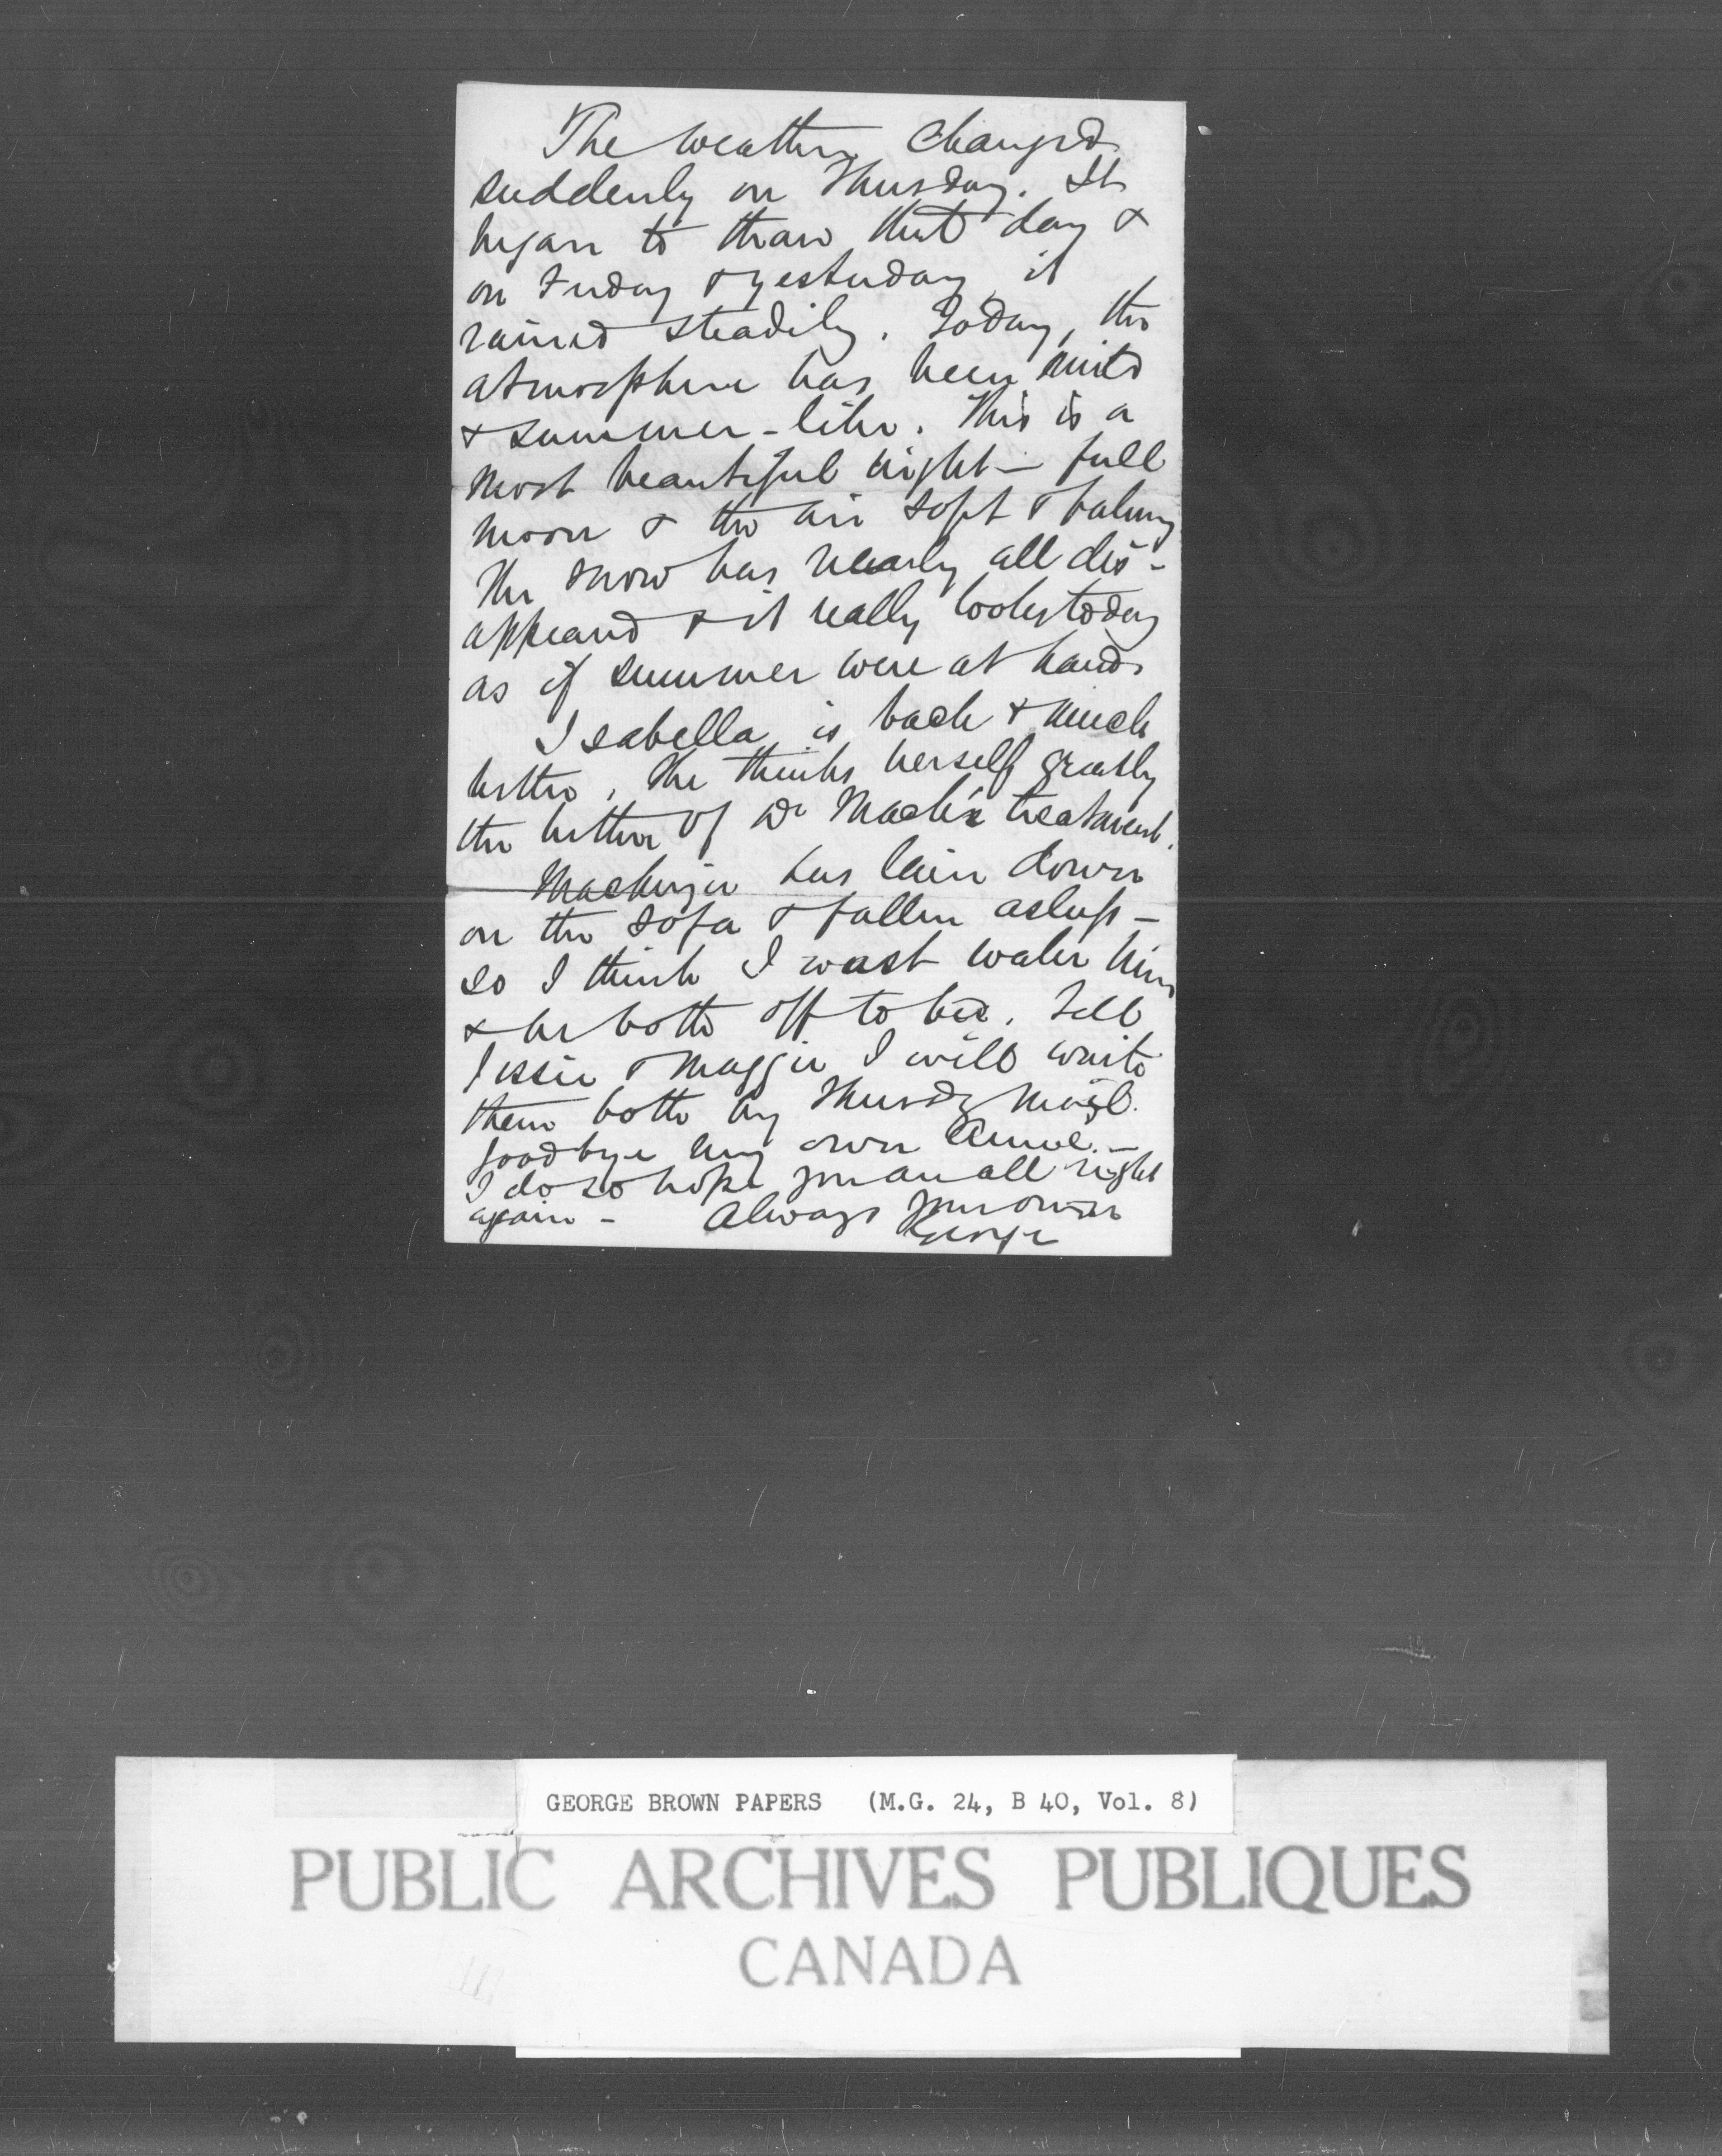 The weather changed
suddenly on Thursday. It
began to thaw that day &
on Friday & yesterday it
rained steadily. Today, the
atmosphere has been mild
& summer-like. This is a
most beautiful night — full
moon & the air soft & balmy
The snow has nearly all dis-
appeared & it really looks today
as if summer were at hand.
Isabella is back & much
better, She thinks herself greatly
the better of Dr Mack's treatment.
Mackenzie has lain down
on the sofa & fallen asleep —
so I think I must wake him
& be both off to bed. Tell
Jessie & Maggie I will write
them both by Thursdy Mail.
Goodbye my own Annie. —
I do so hope you are all right
again - Always your own
George
GEORGE BROWN PAPERS (M.G. 24, B 40, Vol. 8)
PUBLIC ARCHIVES PUBLIQUES
CANADA